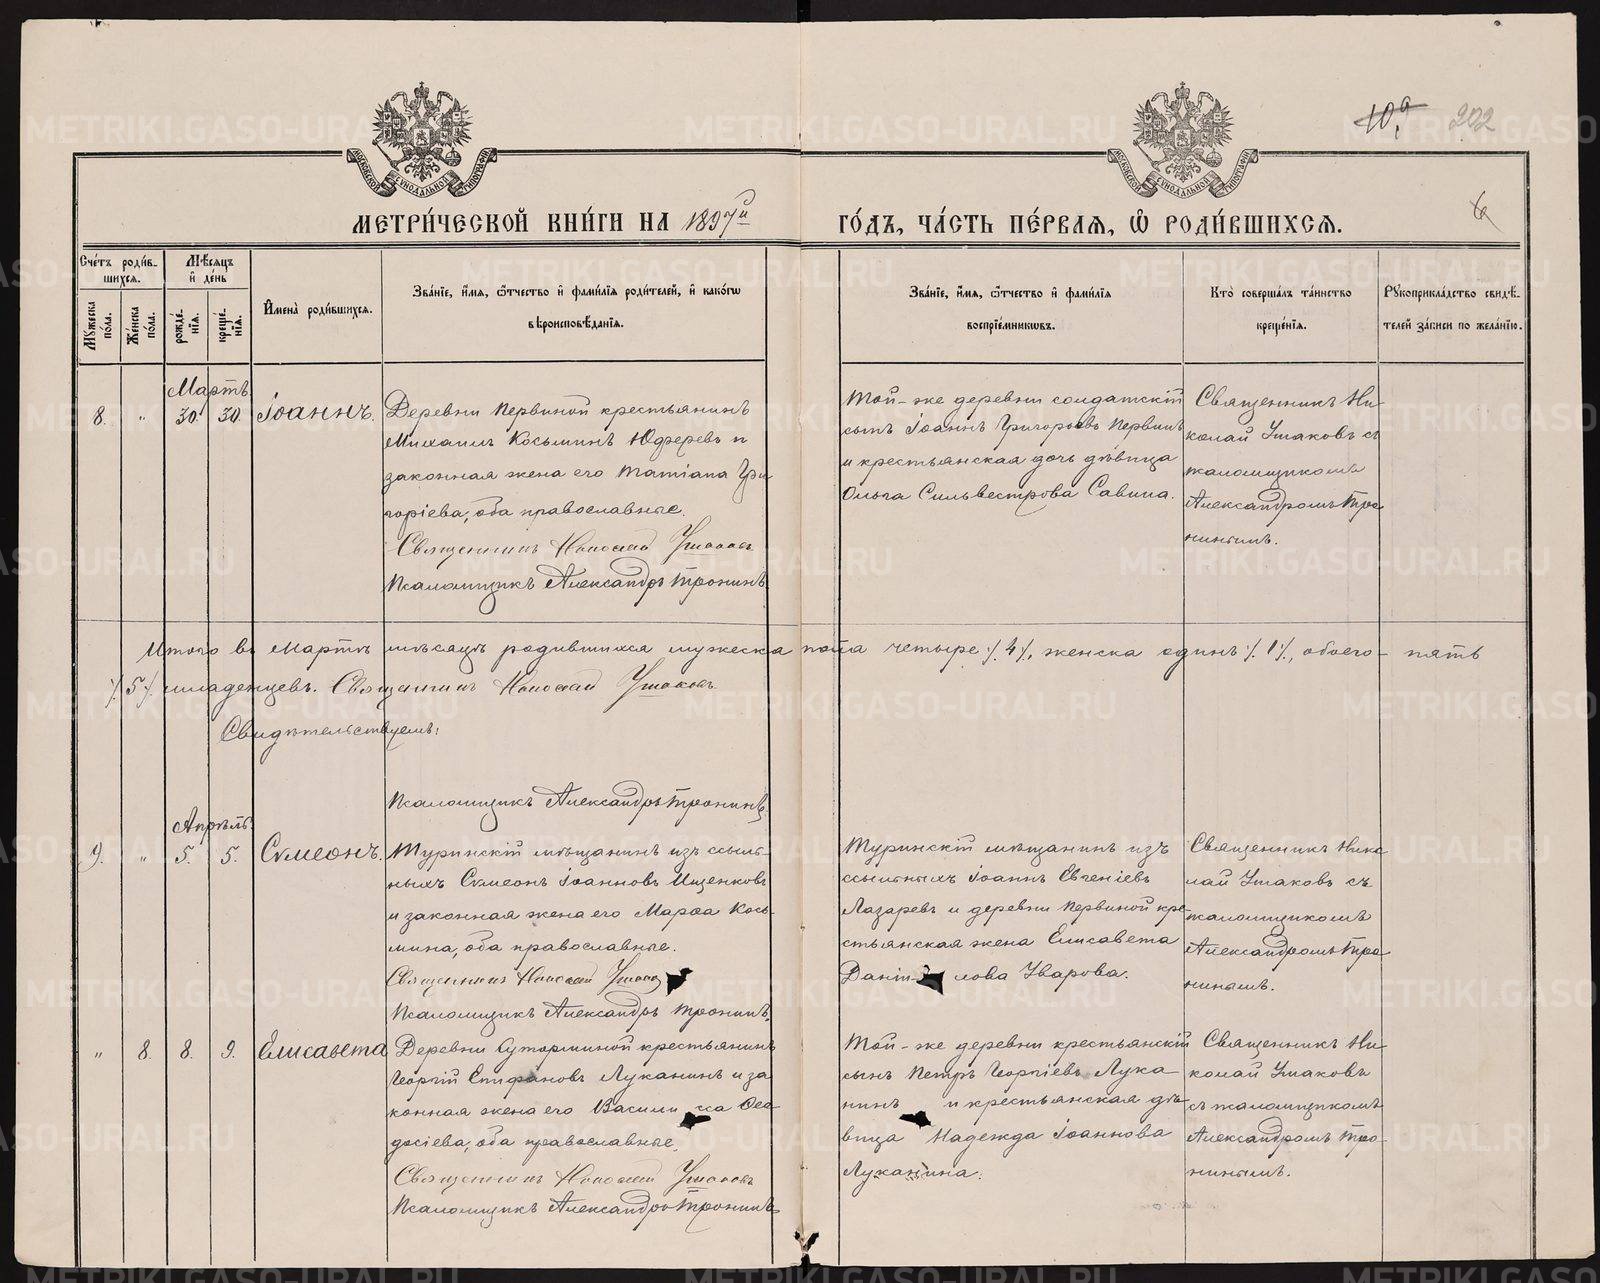 10а 202
6
МОСКОВСКОЙ СУНОДАЛЬНОЙ ТИПОГРАФІИ
МОСКОВСКОЙ СУНОДАЛЬНОЙ ТИПОГРАФІИ
МЕТРИ́ЧЕСКОЙ КНИ́ГИ НА 1897й ГО́ДЪ, ЧА́СТЬ ПЕ́РВАЯ, Ѡ РОДИ́ВШИХСЯ.
Сче́тъ роди́в-
шихся.
Мѣ́сяцъ
и҆ де́нь
Мꙋ́жеска по́ла.
Же́нска по́ла.
рожде́-
нїѧ.
креще́-
нїѧ.
И҆мена̀ роди́вшихся.
Зва́нїе, и҆́мѧ, ѻ҆́тчество и҆ фами́лїѧ роди́телей, и҆ како́гѡ
вѣроисповѣ́данїѧ.
Зва́нїе, и҆́мѧ, ѻ҆́тчество и҆ фами́лїѧ
воспрїе́мникѡвъ.
Кто̀ соверша́лъ та́инство
креще́нїѧ.
Рꙋкоприкла́дство свидѣ́-
телей за́писи по жела́нїю.
Мартъ
8. " 30. 30. Іоаннъ.
Деревни Первиной крестьянинъ
Михаилъ Косьминъ Юферевъ и
законная жена его Татіана Гри
горіева, оба православные.
Священникъ Николай Ушаковъ
Псаломщикъ Александръ Тронинъ
Той-же деревни солдатскій
сынъ Іоаннъ Григорьевъ Первинъ
и крестьянская дочь дѣвица
Ольга Сильвестрова Савина.
Священникъ Ни-
колай Ушаковъ съ
псаломщикомъ
Александромъ Тро
нинымъ.
Итого въ Мартѣ мѣсяцѣ родившихся мужеска пола четыре /.4/., женска одинъ /.1/., обоего- пять
/.5/. младенцевъ. Священникъ Николай Ушаковъ
Свидѣтельствуемъ:
Псаломщикъ Александръ Тронинъ
Апрѣль.
9. " 5. 5. Сѵмеонъ.
Туринскій мѣщанинъ изъ ссыль-
ныхъ Сѵмеонъ Іоанновъ Ищенковъ
и законная жена его Марѳа Кось-
мина, оба православные.
Священникъ Николай Ушак
Псаломщикъ Александръ Тронинъ.
Туринскій мѣщанинъ изъ
ссыльныхъ Іоаннъ Евгеніевъ
Лазаревъ и деревни Первиной кре-
стьянская жена Елисавета
Даніи- лова Уварова.
Священникъ Нико
лай Ушаковъ съ
псаломщикомъ
Александромъ Тро
нинымъ.
" 8. 8. 9. Елисавета
Деревни Суторминой крестьянинъ
Георгій Епифановъ Луканинъ и за
конная жена его Васили сса Ѳео-
досіева, оба православные.
Священникъ Николай Ушаковъ
Псаломщикъ Александръ Тронинъ
Той-же деревни крестьянскій
сынъ Петръ Георгіевъ Лука
нинъ и крестьянская дѣ-
вица Надежда Іоаннова
Луканина.
Священникъ Ни-
колай Ушаковъ
съ псаломщикомъ
Александромъ Тро-
нинымъ.
METRIKI.GASO-URAL.RU